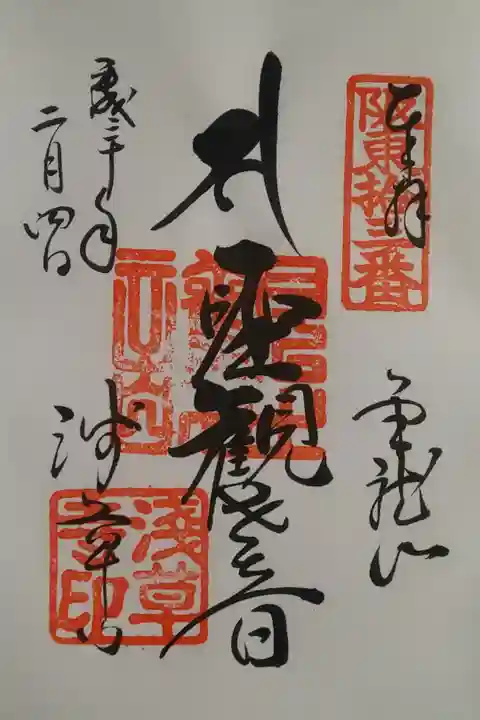 奉拝
阪東拾三番
金龍山
聖観世音
浅草寺
淺草寺印
平成三十年
二月四日